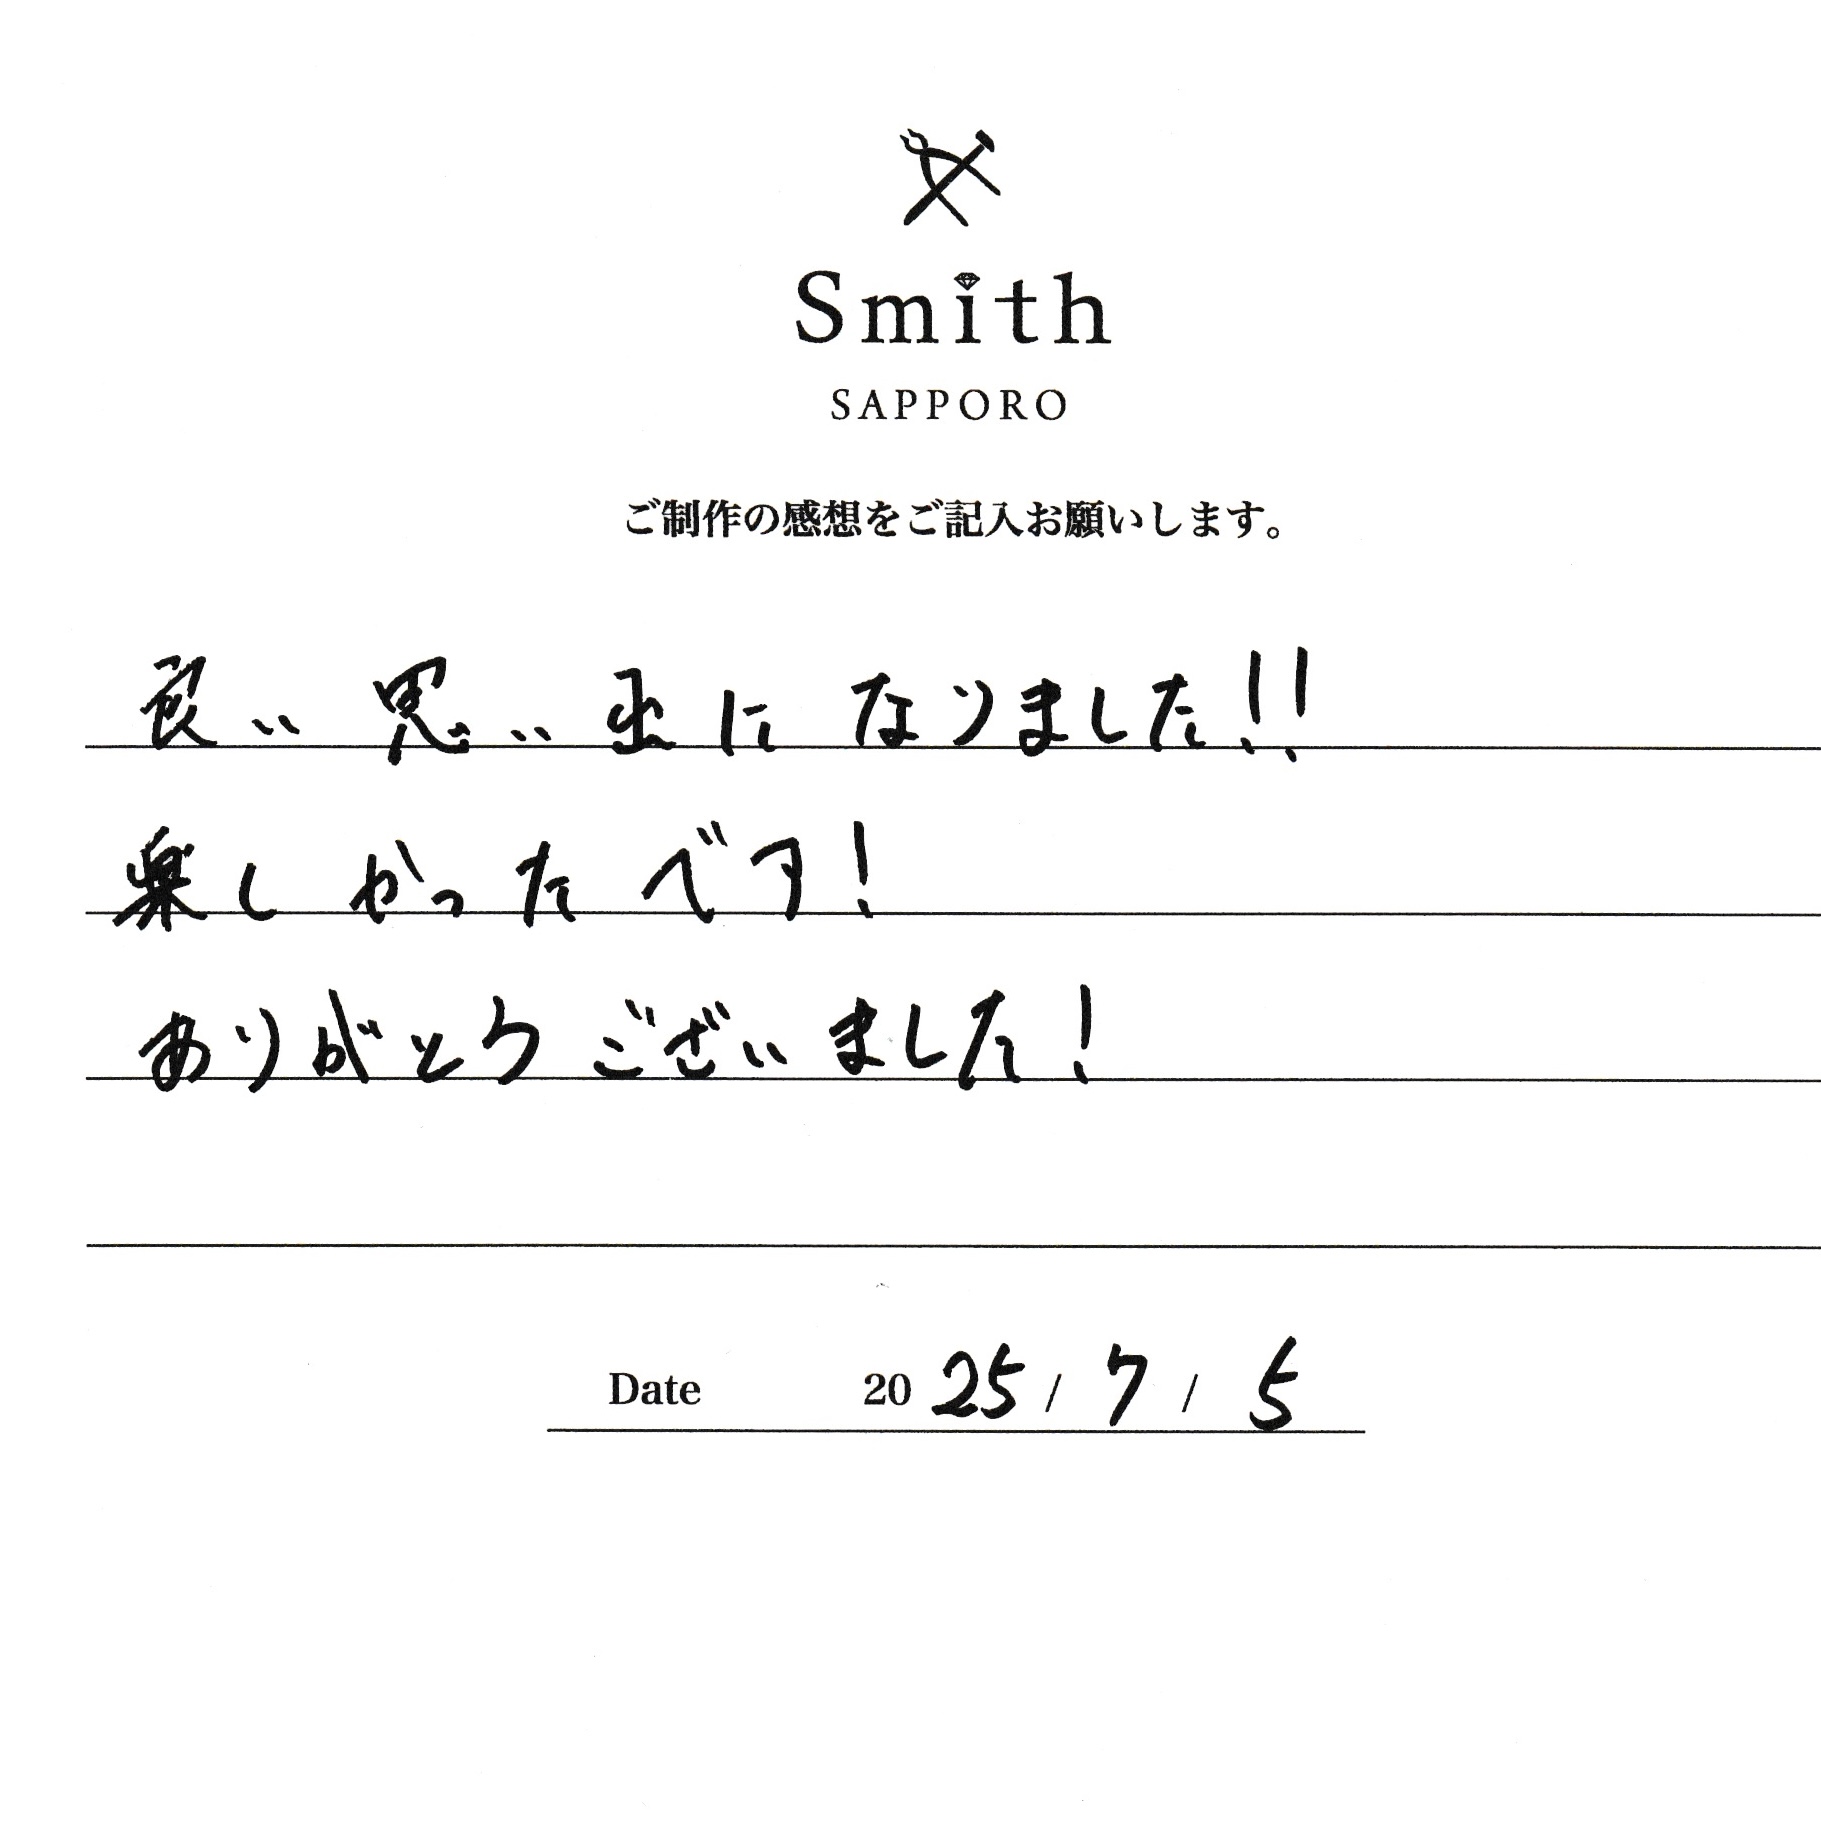 Smith
SAPPORO
ご制作の感想をご記入お願いします。
良い思い出になりました!!
楽しかったです!
ありがとうございました!
Date 2025/7/5